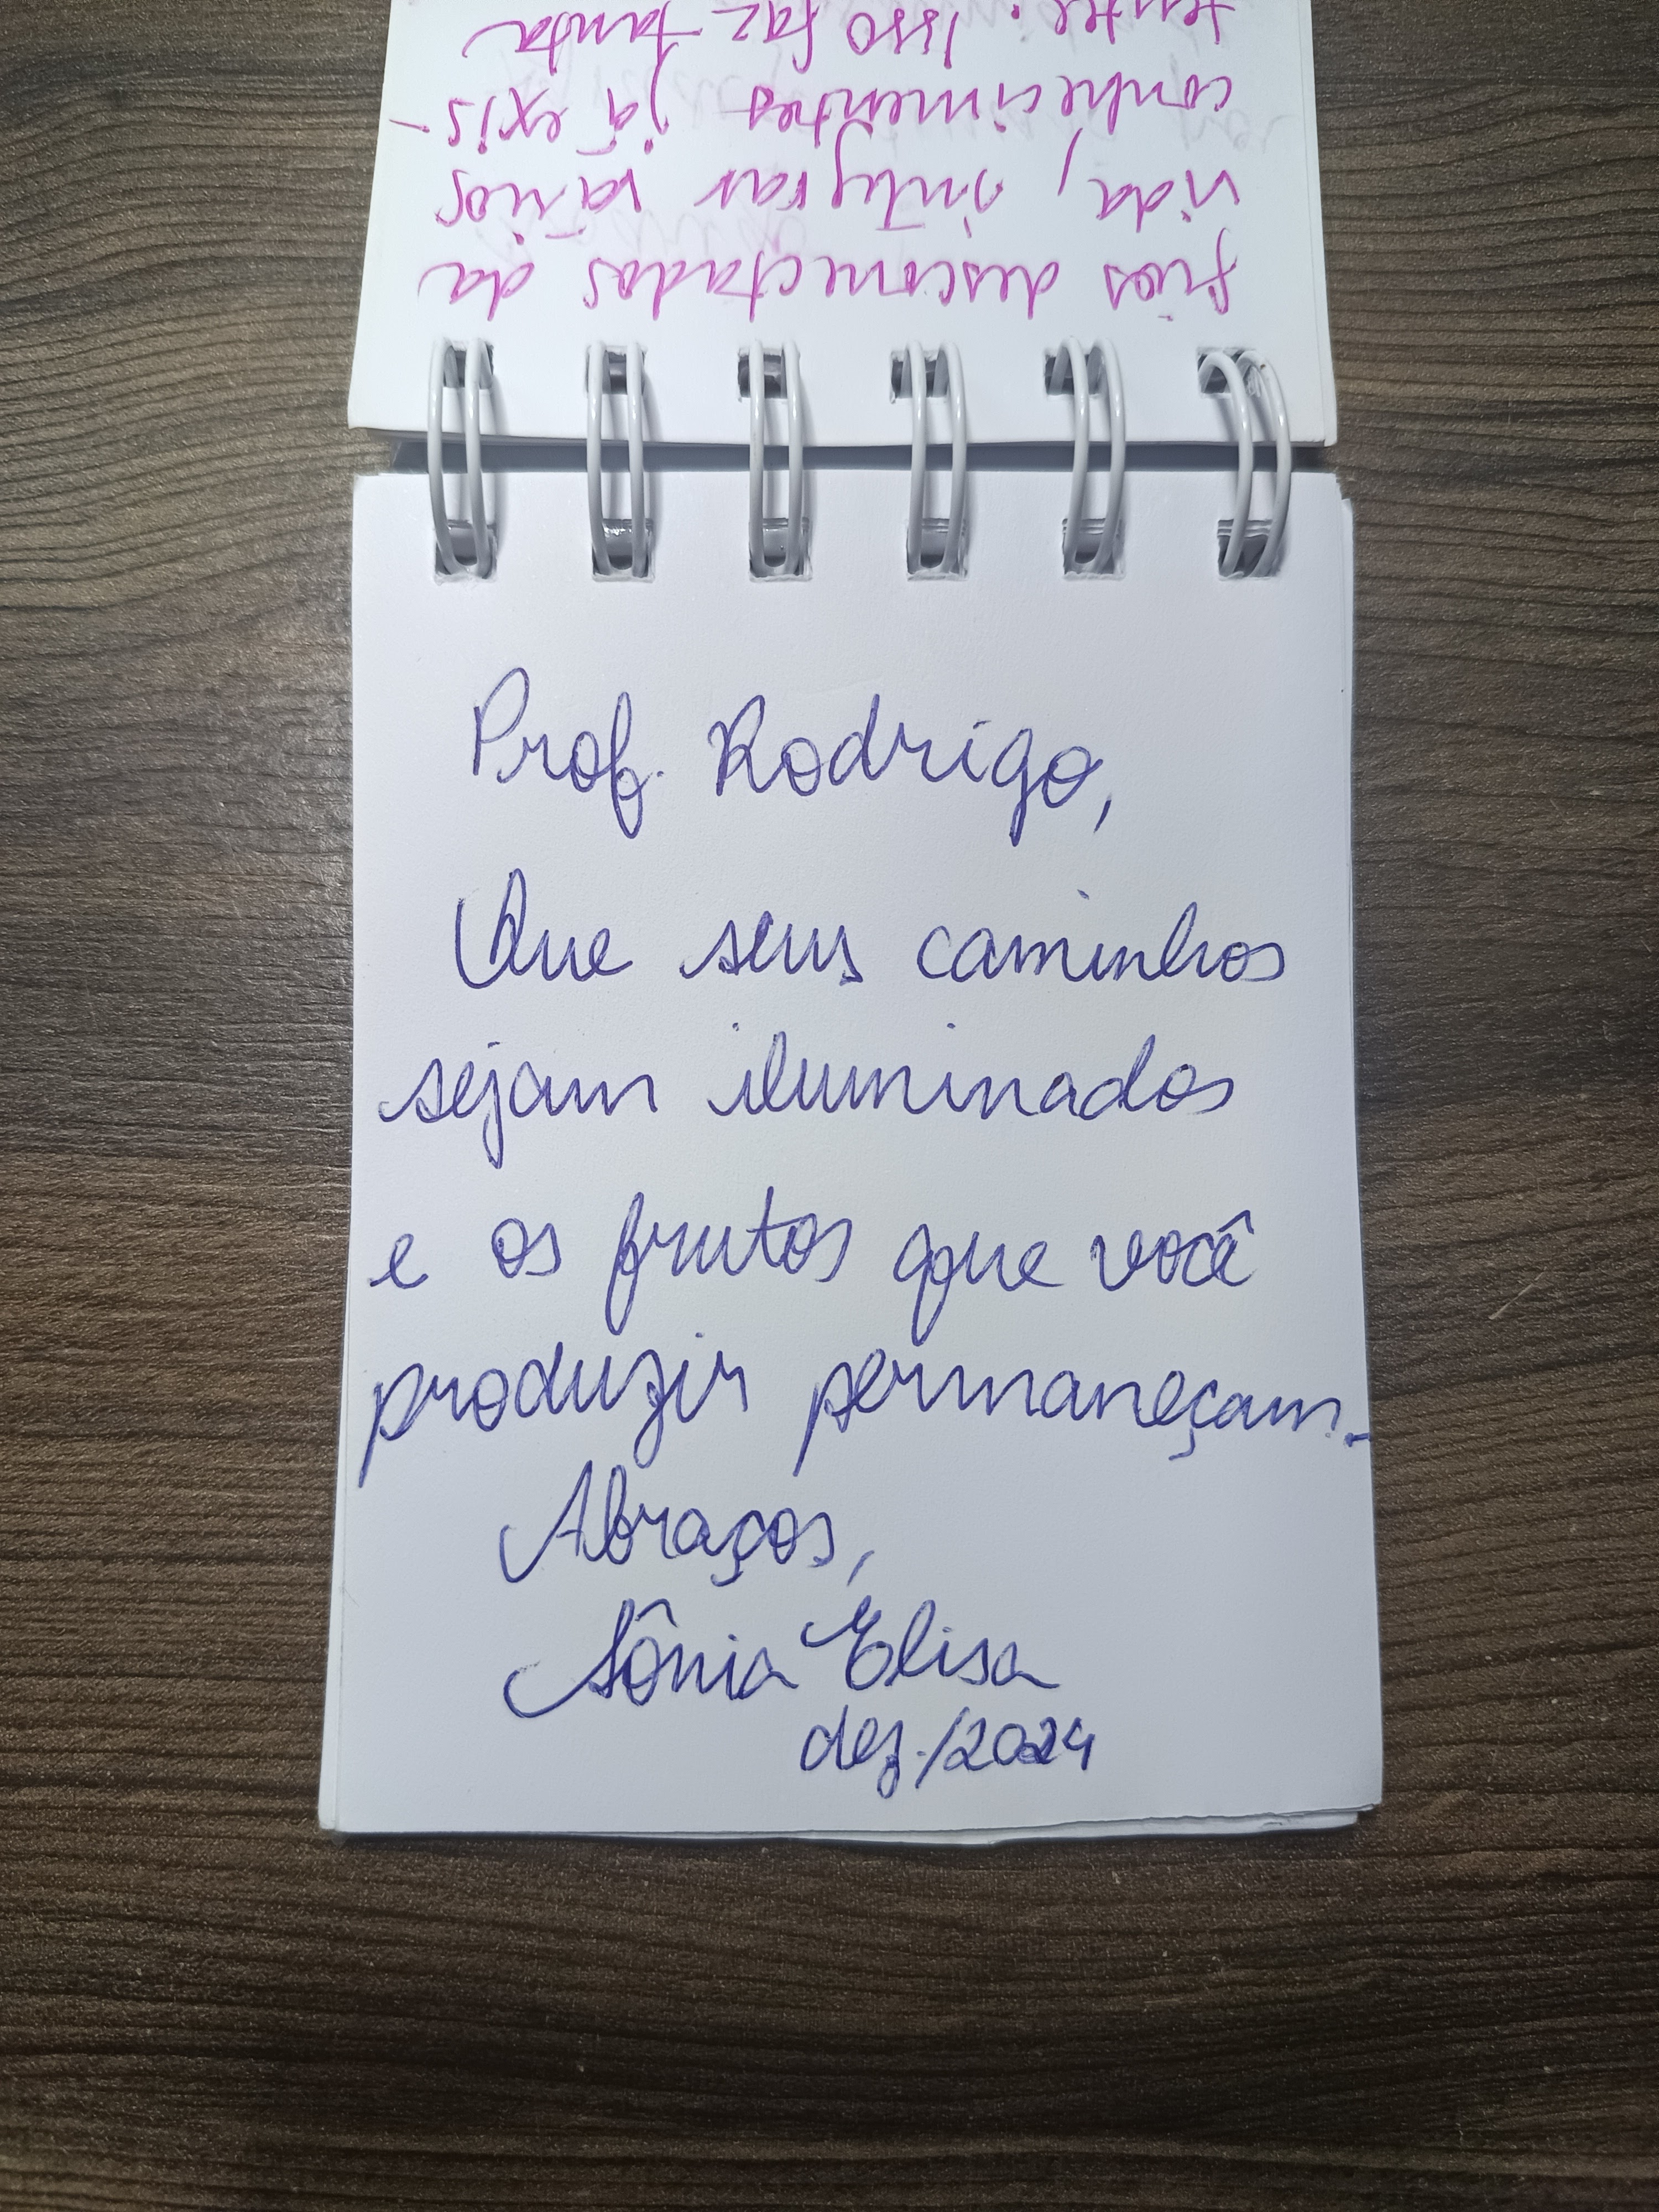 fios desconectados da
vida, integrar vários
conhecimentos já exis-
tentes. Isso faz tanta
Prof. Rodrigo,
Que seus caminhos
sejam iluminados
e os frutos que você
produzir permaneçam.
Abraços,
Sônia Elisa
dez./2024